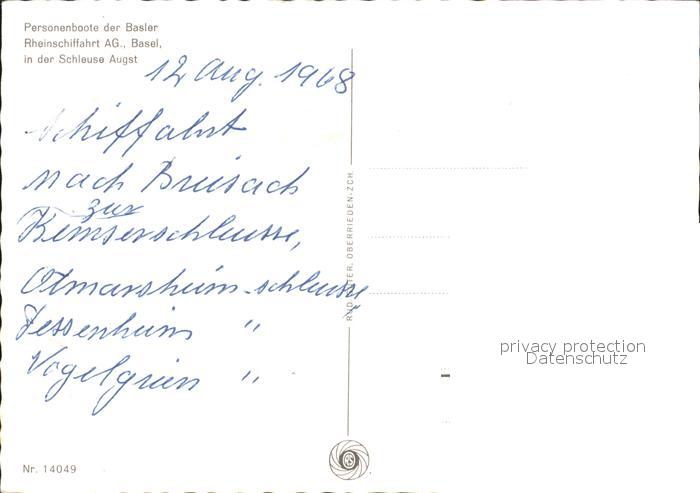 Personenboote der Basler
Rheinschiffahrt AG., Basel,
in der Schleuse Augst
12 Aug. 1968
Schiffahrt
nach Breisach
zur
Kemserschleusse,
Otmarsheim-schleusse
Fessenheim "
Vogelgrün "
OBERRIEDEN-ZCH.
privacy protection
Datenschutz
Nr. 14049